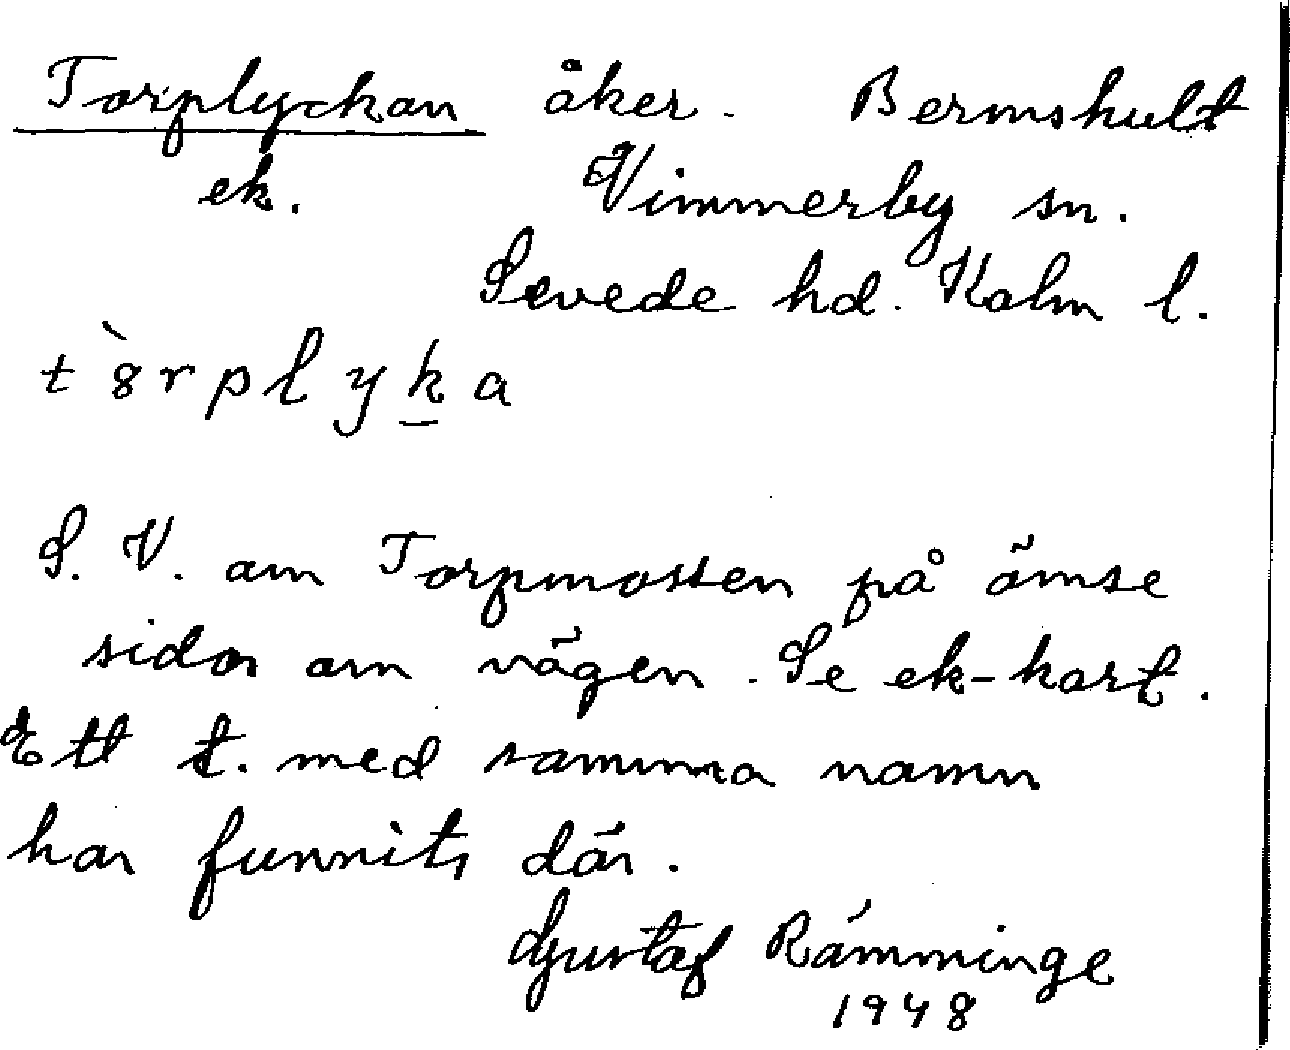 Torplyckan åker. Bermshult
ek. Vimmerby sn.
Sevede hd. Kalm l.
t 8̀ r p l y k a
S. V. om Torpmossen på ömse
sidor om vägen. Se ek-kart.
Ett t. med samma namn
har funnits där.
Gustaf Rämminge
1948